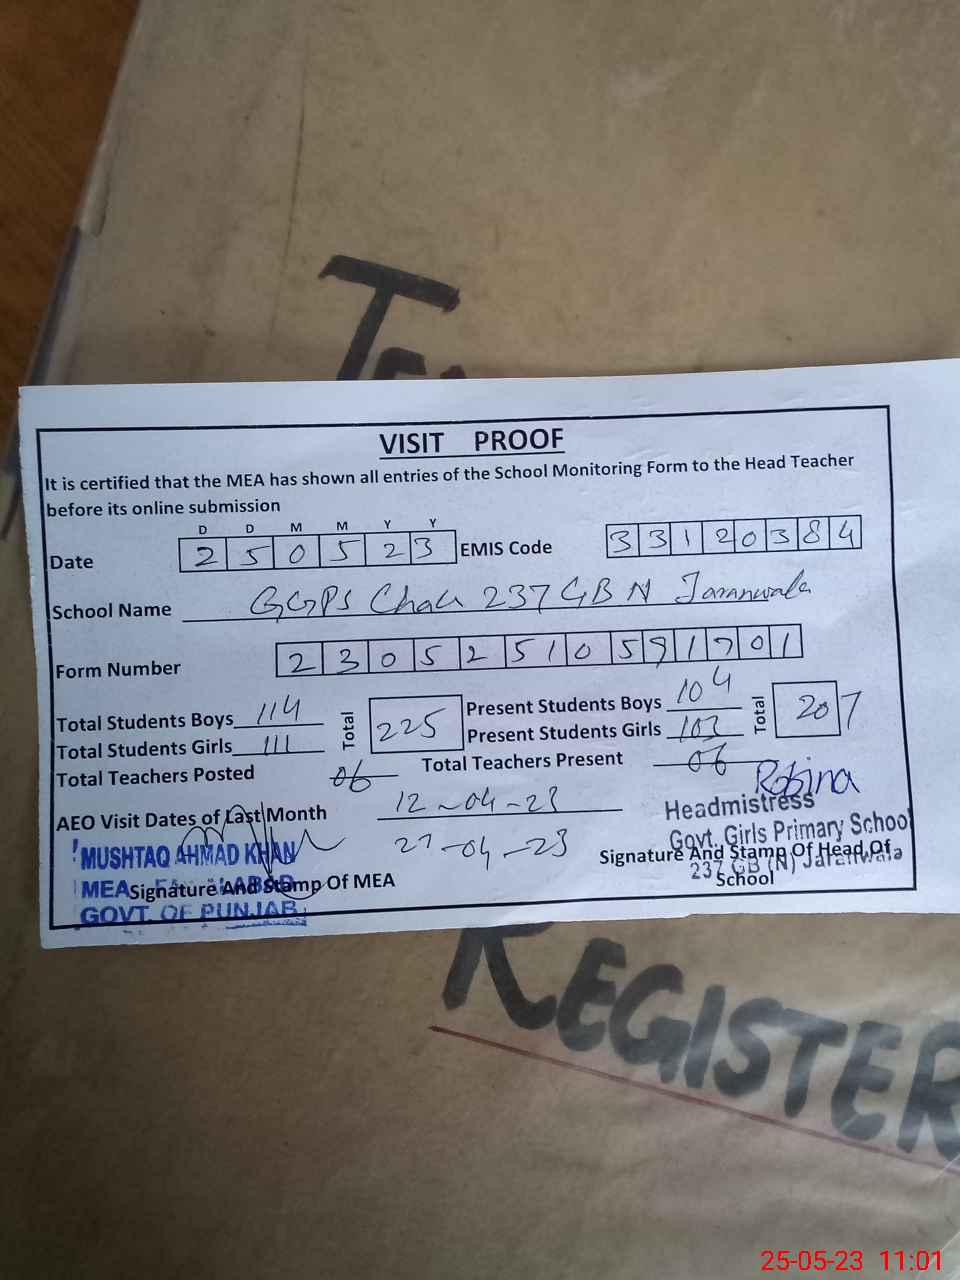 VISIT PROOF
It is certified that the MEA has shown all entries of the School Monitoring Form to the Head Teacher
before its online submission
D D M M Y Y
Date 2 5 0 5 2 3 EMIS Code 3 3 1 2 0 3 8 4
School Name GGPS Chak 237 GB N Jaranwala
Form Number 2 3 0 5 2 5 1 0 5 9 1 7 0 1
Total Students Boys 114 Total 225 Present Students Boys 104 Total 207
Total Students Girls 111 Present Students Girls 103
Total Teachers Posted 06 Total Teachers Present 06
Robina
AEO Visit Dates of Last Month 12-04-23
27-04-23
Headmistress
Govt. Girls Primary School
237 GB (N) Jaranwala
Signature And Stamp Of Head Of
School
MUSHTAQ AHMAD KHAN
MEA
GOVT. OF PUNJAB
Signature And Stamp Of MEA
REGISTER
25-05-23 11:01